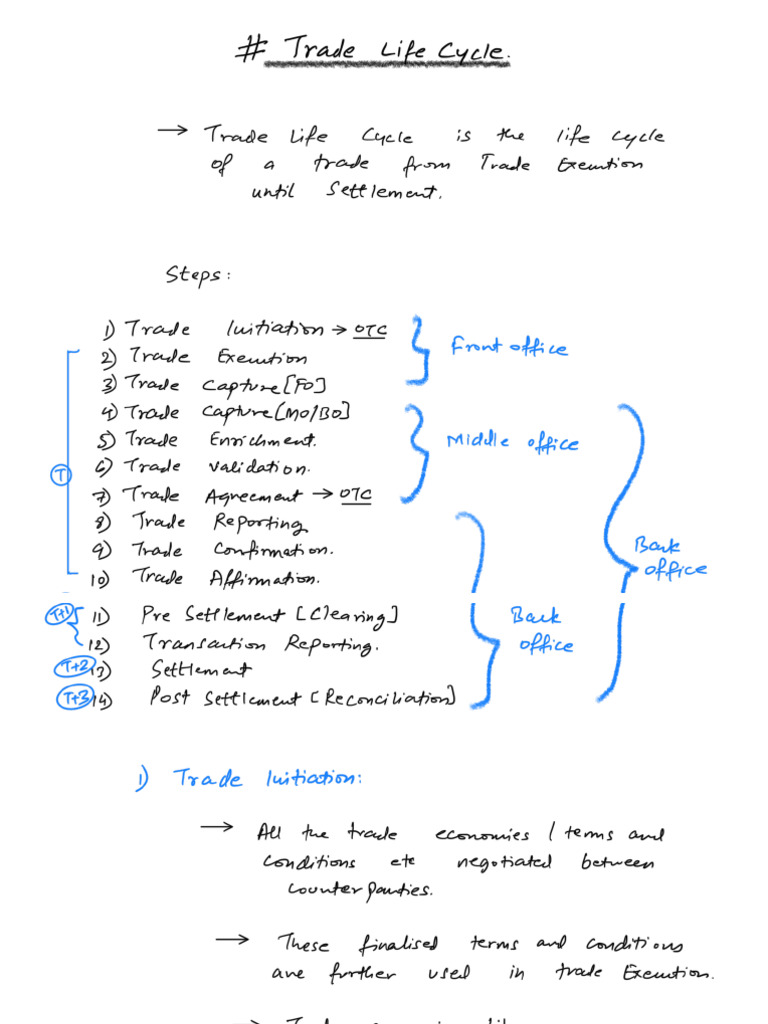 # Trade Life Cycle.
→ Trade Life Cycle is the life cycle
of a trade from Trade Exeution
until Settlement.
Steps:
1) Trade Initiation → OTC
2) Trade Exeution
3) Trade Capture [FO]
Front office
4) Trade Capture [MO/BO]
5) Trade Enrichment.
6) Trade Validation.
7) Trade Agreement → OTC
Middle office
T
8) Trade Reporting
9) Trade Confirmation.
10) Trade Affirmation.
Back
office
T+1 11) Pre Settlement [Clearing]
12) Transaction Reporting.
T+2 13) Settlement
T+3 14) Post Settlement [Reconciliation]
Back
office
1) Trade Initiation:
→ All the trade economies / terms and
conditions etc negotiated between
counterparties.
→ These finalised terms and conditions
are further used in trade Exeution.
→